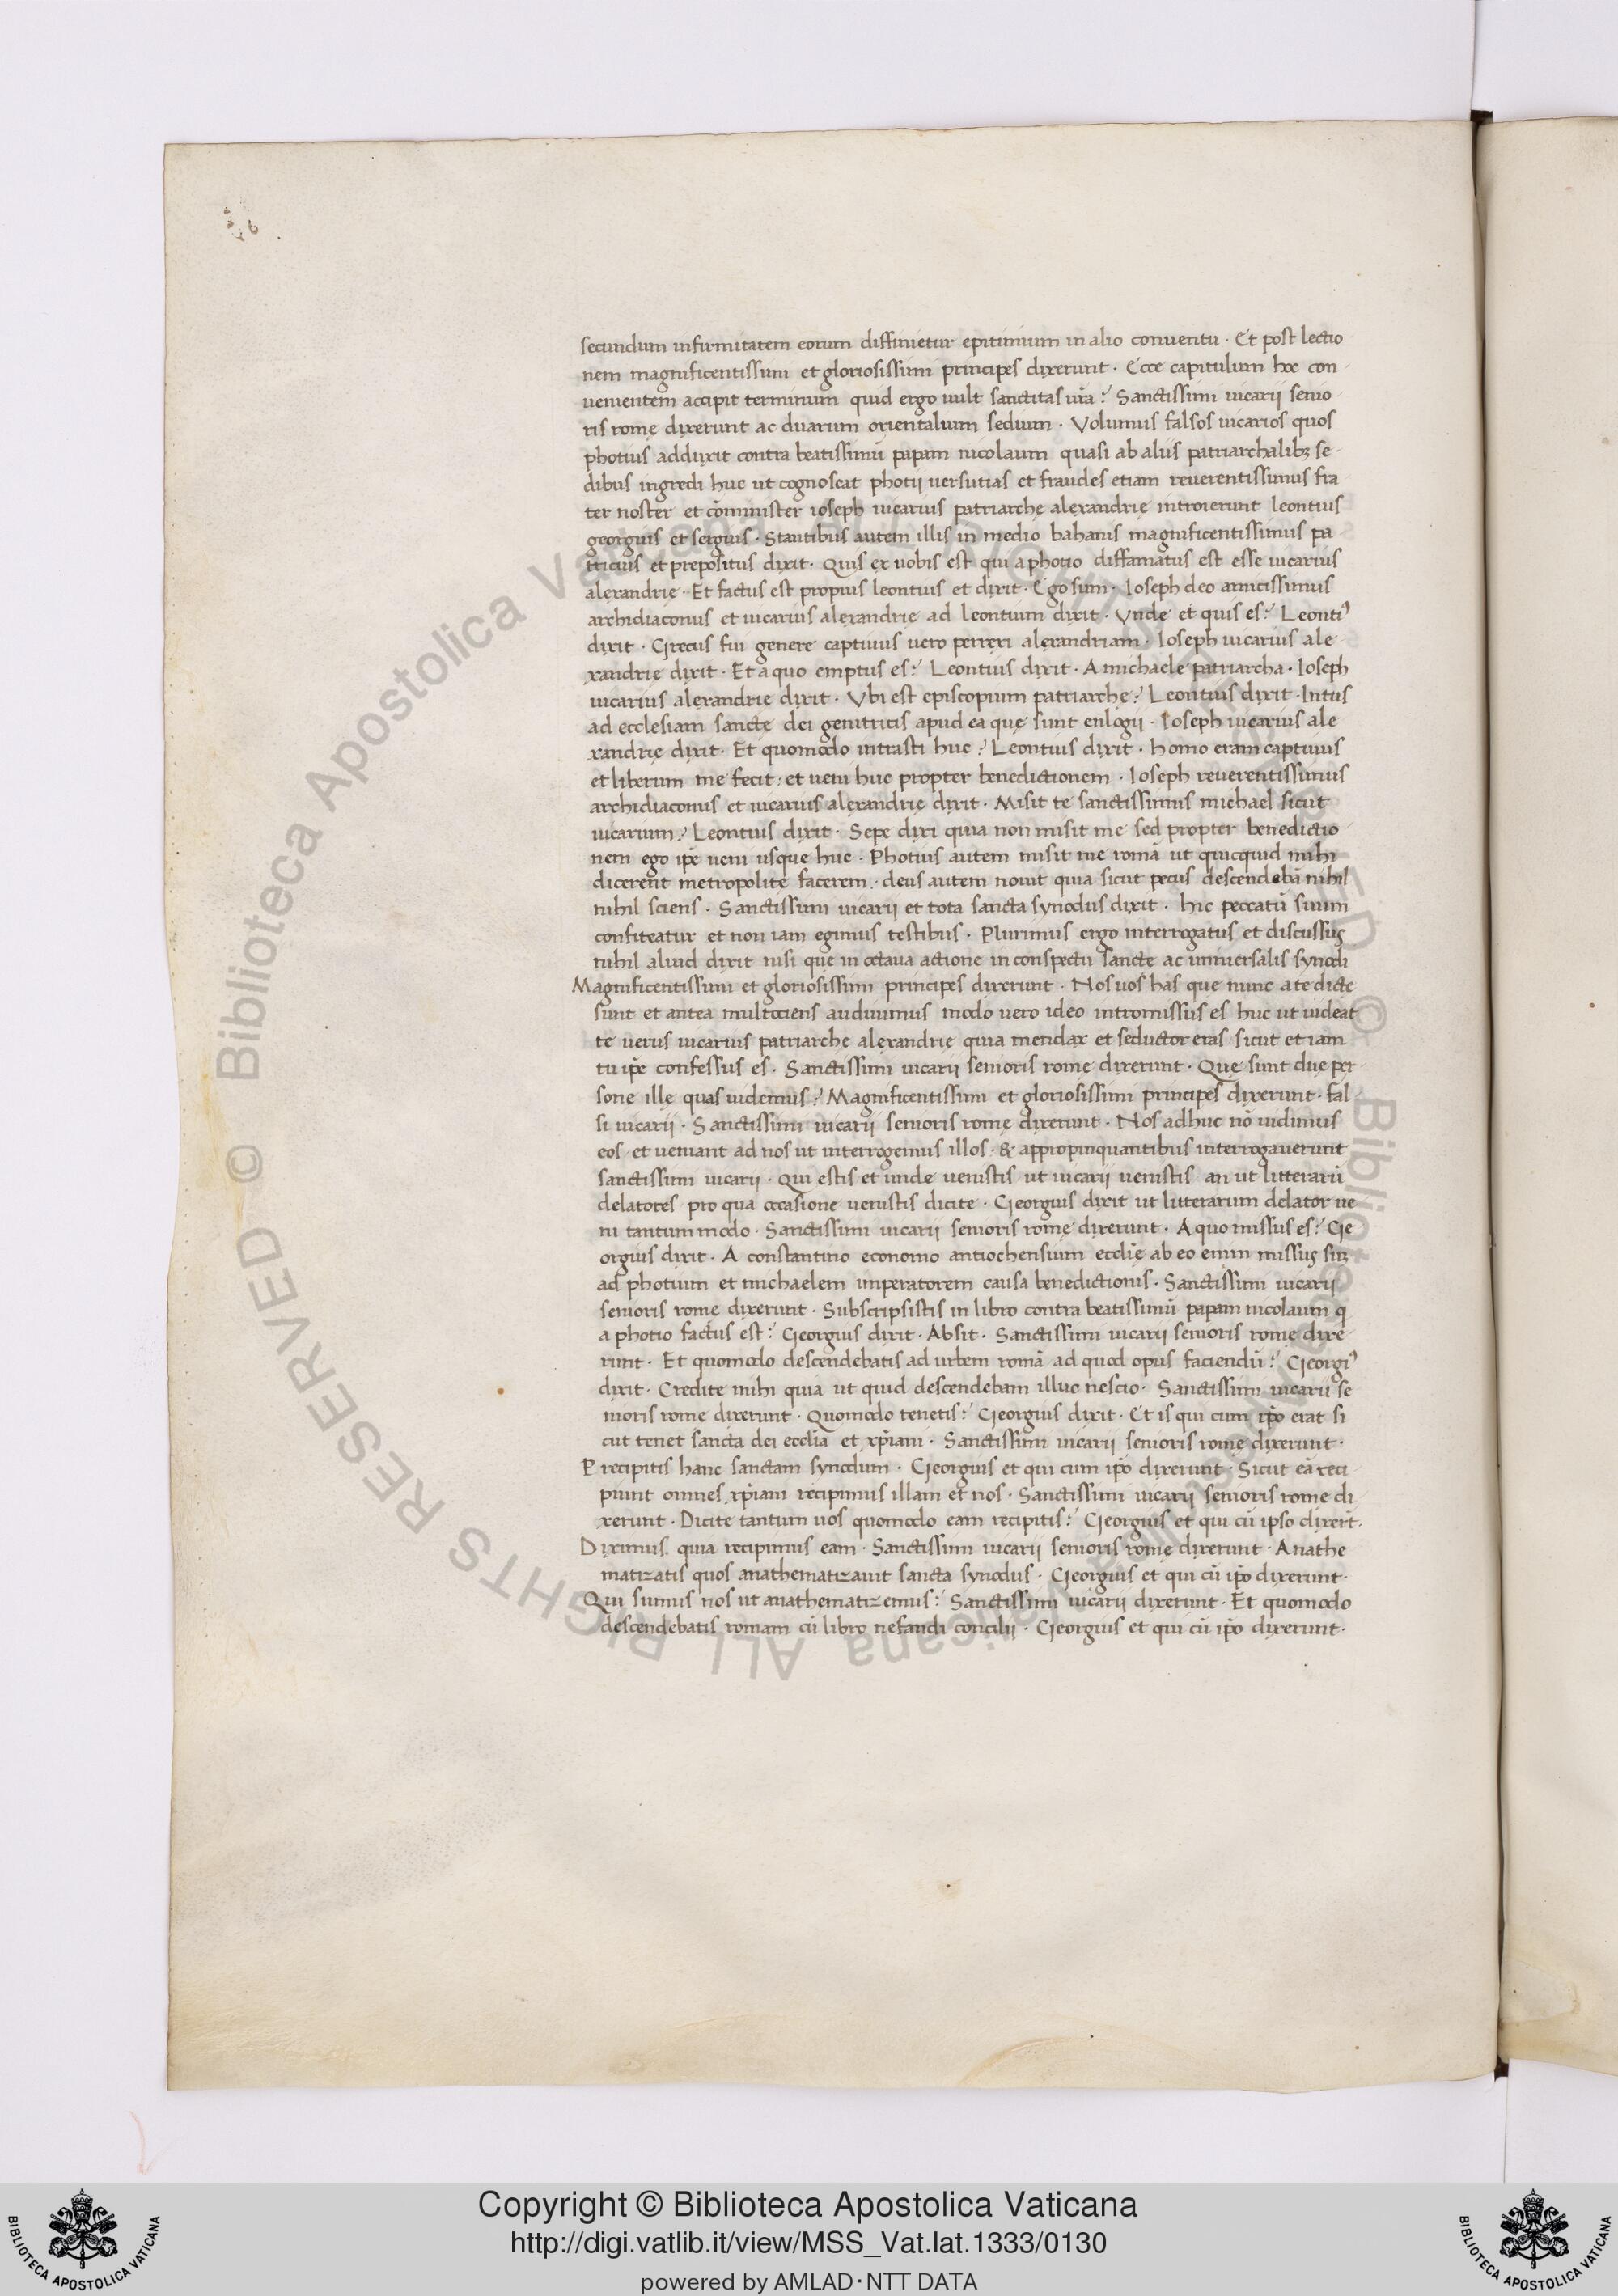 secundum infirmitatem eorum diffinietur epitimium in alio conuentu · Et post lectio
nem magnificentissimi et gloriosissimi principes dixerunt · Ecce capitulum hoc con
uenientem accipit terminum quid ergo uult sanctitas ur̄a? Sanctissimi uicarii senio
ris romę dixerunt ac duarum orientalium sedium · Volumus falsos uicarios quos
photius adduxit contra beatissimū papam nicolaum quasi ab aliis patriarchalibꝫ se
dibus ingredi huc ut cognoscat photii uersutias et fraudes etiam reuerentissimus fra
ter noster et cōminister ioseph uicarius patriarchę alexandrię introierunt leontius
georgius et sergius · Stantibus autem illis in medio bahanis magnificentissimus pa
tricius et prepositus dixit · Quis ex uobis est qui a photio diffamatus est esse uicarius
alexandrię · Et factus est propius leontius et dixit · Ego sum · Ioseph deo amicissimus
archidiaconus et uicarius alexandrię ad leontium dixit · Vnde et quis es? Leontiꝰ
dixit · Grecus fui genere captiuus uero perrexi alexandriam · Ioseph uicarius ale
xandrię dixit · Et a quo emptus es? Leontius dixit · A michaele patriarcha · Ioseph
uicarius alexandrię dixit · Vbi est episcopium patriarchę? Leontius dixit · Intus
ad ecclesiam sancte dei genitricis apud ea quę sunt eulogii · Ioseph uicarius ale
xandrię dixit · Et quomodo intrasti huc? Leontius dixit · homo eram captiuus
et liberum me fecit · et ueni huc propter benedictionem · Ioseph reuerentissimus
archidiaconus et uicarius alexandrię dixit · Misit te sanctissimus michael sicut
uicarium? Leontius dixit · Sepe dixi quia non misit me sed propter benedictio
nem ego ip̄e ueni usque huc · Photius autem misit me romā ut quicquid mihi
dicerent metropolite facerem · deus autem nouit quia sicut pecus descendebā nihil
nihil sciens · Sanctissimi uicarii et tota sancta synodus dixit · hic peccatū suum
confiteatur et non iam egimus testibus · Plurimus ergo interrogatus et discussus
nihil aliud dixit nisi que in octaua actione in conspectu sancte ac uniuersalis synodi
Magnificentissimi et gloriosissimi principes dixerunt · Nos uos has que nunc a te dicte
sunt et antea multociens audiuimus modo uero ideo intromissus es huc ut uideat
te uerus uicarius patriarche alexandrię quia mendax et seductor eras sicut et iam
tu ip̄e confessus es · Sanctissimi uicarii senioris romę dixerunt · Quę sunt duę per
sone illę quas uidemus? Magnificentissimi et gloriosissimi principes dixerunt · fal
si uicarii · Sanctissimi uicarii senioris romę dixerunt · Nos adhuc nō uidimus
eos · et ueniant ad nos ut interrogemus illos · & appropinquantibus interrogauerunt
sanctissimi uicarii · Qui estis et unde uenistis ut uicarii uenistis an ut litterarū
delatores pro qua occasione uenistis dicite · Georgius dixit ut litterarum delator ue
ni tantummodo · Sanctissimi uicarii senioris romę dixerunt · A quo missus es? Ge
orgius dixit · A constantino economo antiochensium eccl̄ię ab eo enim missus sū
ad photium et michaelem imperatorem causa benedictionis · Sanctissimi uicarii
senioris romę dixerunt · Subscripsistis in libro contra beatissimū papam nicolaum q
a photio factus est? Georgius dixit · Absit · Sanctissimi uicarii senioris romę dixe
runt · Et quomodo descendebatis ad urbem romā ad quod opus faciendū? Georgiꝰ
dixit · Credite mihi quia ut quid descendebam illuc nescio · Sanctissimi uicarii se
nioris romę dixerunt · Quomodo tenetis? Georgius dixit · Et is qui cum ip̄o erat si
cut tenet sancta dei eccl̄ia et xp̄iani · Sanctissimi uicarii senioris romę dixerunt ·
Precipitis hanc sanctam synodum · Georgius et qui cum ip̄o dixerunt · Sicut eā reci
piunt omnes xp̄iani recipimus illam et nos · Sanctissimi uicarii senioris romę di
xerunt · Dicite tantum uos quomodo eam recipitis? Georgius et qui cū ipso dixert̄ ·
Diximus quia recipimus eam · Sanctissimi uicarii senioris romę dixerunt · Anathe
matizatis quos anathematizauit sancta synodus · Georgius et qui cū ip̄o dixerunt ·
Qui sumus nos ut anathematizemus? Sanctissimi uicarii dixerunt · Et quomodo
descendebatis romam cū libro nefandi concilii · Georgius et qui cū ip̄o dixerunt ·
© Biblioteca Apostolica Vaticana ALL RIGHTS RESERVED
© Biblioteca Apostolica Vaticana ALL RIGHTS RESERVED
Copyright © Biblioteca Apostolica Vaticana
http://digi.vatlib.it/view/MSS_Vat.lat.1333/0130
powered by AMLAD·NTT DATA
BIBLIOTECA APOSTOLICA VATICANA
BIBLIOTECA APOSTOLICA VATICANA